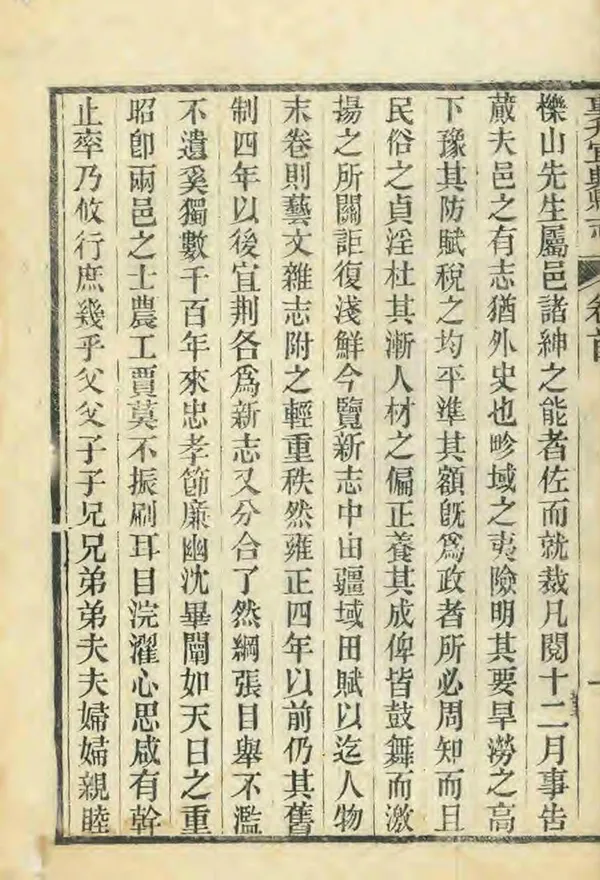 重刊宜興縣志 卷首 一
櫟山先生屬邑諸紳之能者佐而就裁凡閱十二月事告
蕆夫邑之有志猶外史也畛域之夷險明其要旱澇之高
下豫其防賦稅之均平準其額旣爲政者所必周知而且
民俗之貞淫杜其漸人材之偏正養其成俾皆鼓舞而激
揚之所關詎復淺鮮今覽新志中由疆域田賦以迄人物
末卷則藝文雜志附之輕重秩然雍正四年以前仍其舊
制四年以後宜荆各爲新志又分合了然綱張目舉不濫
不遺奚獨數千百年來忠孝節廉幽沈畢闡如天日之重
昭卽兩邑之士農工賈莫不振刷耳目浣濯心思咸有幹
止率乃攸行庶幾乎父父子子兄兄弟弟夫夫婦婦親睦